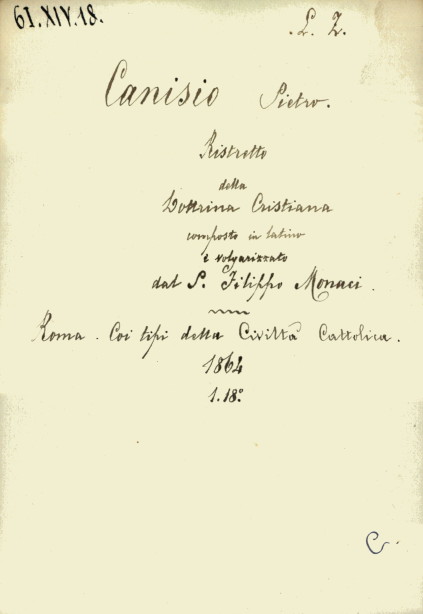 61.XIV.18.
.L. Z.
Canisio Pietro.
Ristretto
della
Dottrina Cristiana
composto in latino
e volgarizzato
dal P. Filippo Monaci.
Roma. Coi tipi della Civiltà Cattolica.
1864
1.18°
C.